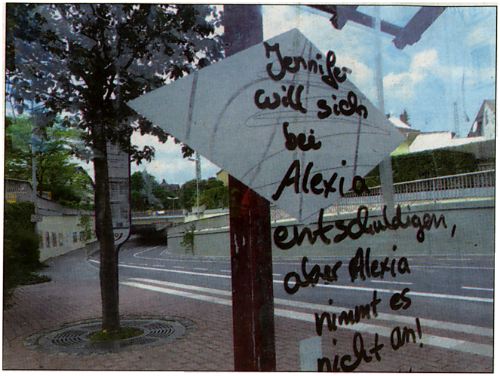 Jennifer
will sich
bei
Alexia
entschuldigen,
aber Alexia
nimmt es
nicht an!